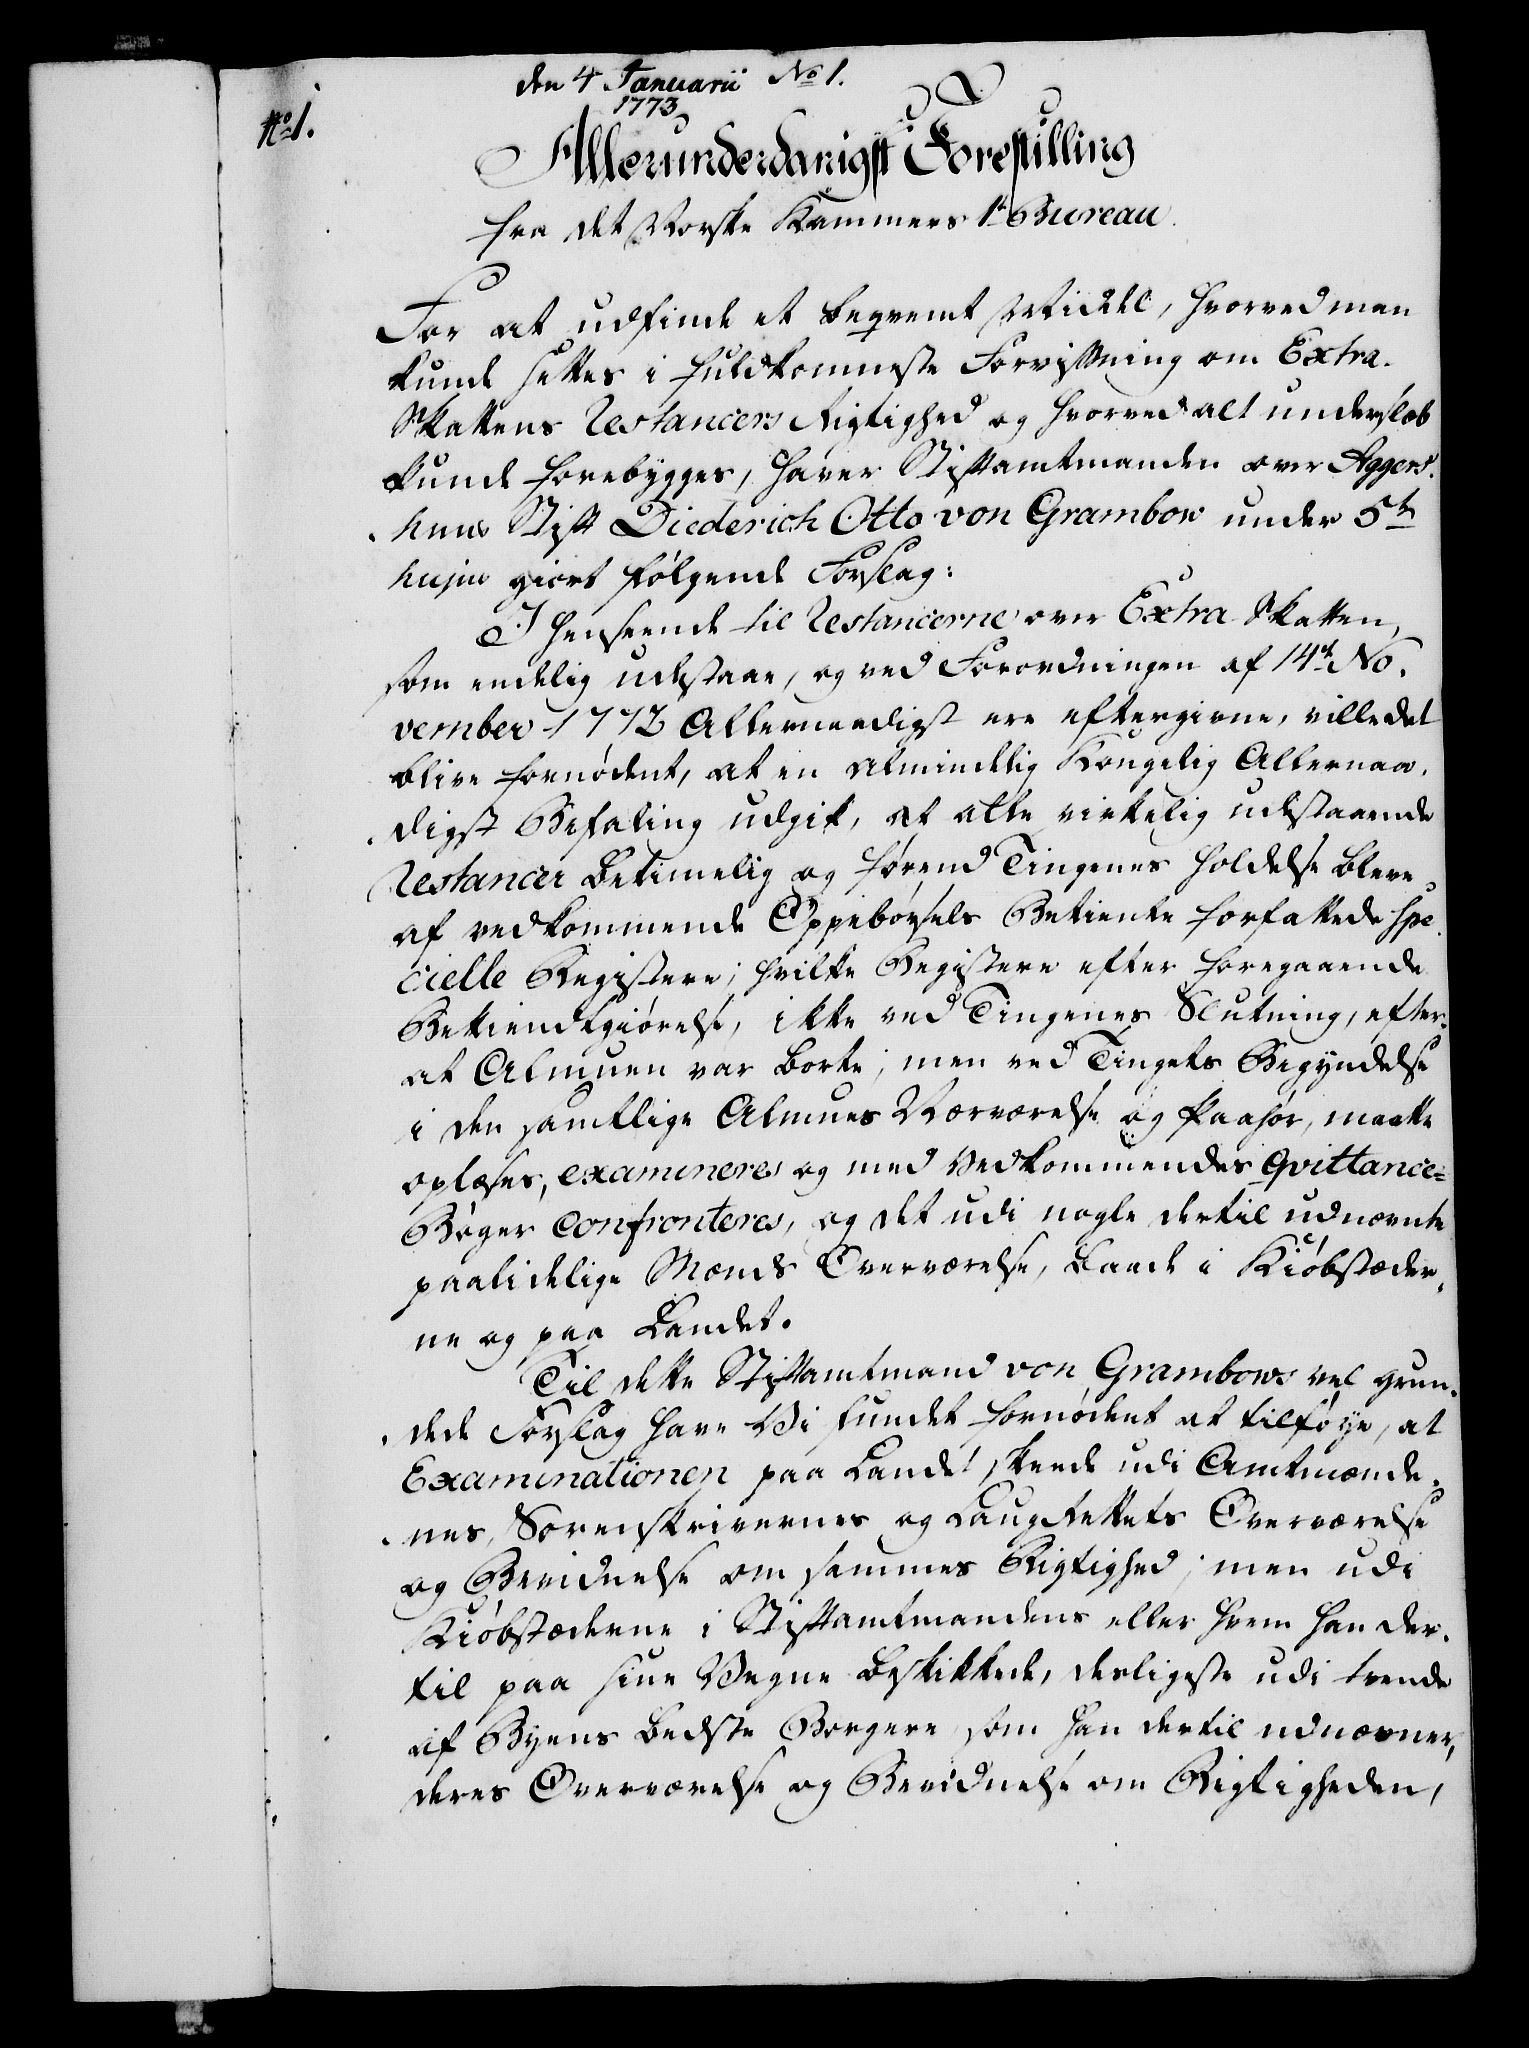 den 4 Januarii No 1.
1773
No 1.
Allerunderdanigst Forestilling
fra det Norske Kammers 1te Bureau.
For at udfinde et beqvemt Middel, hvorved man
kunde settes i fuldkommeste Forvistning om Extra-
Skattens Restancers Rigtighed og hvorved alt underslæb
kunde forebygges, haver Stiftamtmanden over Aggers-
huus Stift Diederich Otto von Grambow under 5te
hujus giort følgende Forslag:
I Henseende til Restancerne over Extra Skatten,
som endelig udestaae, og ved Forordningen af 14de No-
vember 1772 Allernaadigst ere eftergivne, ville det
blive fornødent, at en almindelig Kongelig Allernaa-
digst Befaling udgik, at alle virkelig udestaaende
Restancer betimelig og førend Tingenes Holdelse bleve
af vedkommende Oppebørsels Betiente forfattede spe-
cielle Registere; hvilke Registere efter foregaaende
Bekiendtgiørelse, ikke ved Tingenes Slutning, efter-
at Almuen var borte; men ved Tingets Begyndelse
i den samtlige Almues Nærværelse og Paahør, maatte
oplæses, examineres og med Vedkommendes Qvittance-
Bøger confronteres, og det udi nogle dertil udnævnte
paalidelige Mænds Overværelse, baade i Kiøbstæder-
ne og paa Landet.
Til dette Stiftamtmand von Grambows vel grun-
dede Forslag have Vi fundet fornødent at tilføye, at
Examinationen paa Landet skeede udi Amtmænde-
nes, Sorenskrivernes og Laugrettets Overværelse
og Bevidnelse om sammes Rigtighed; men udi
Kiøbstæderne i Stiftamtmandens eller hvem han der-
til paa sine Vegne beskikkede, desligeste udi trende
af Byens bedste Borgere som han dertil udnævner,
deres Overværelse og Bevidnelse om Rigtigheden,